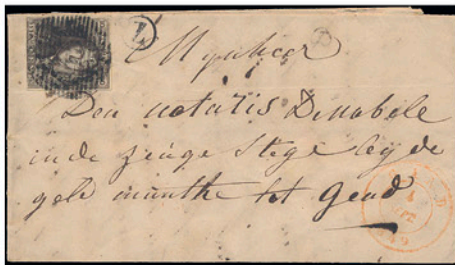 Mynheer
Den notaris DeNabele
inde zeuge Stege by de
gele munthe tot Gend